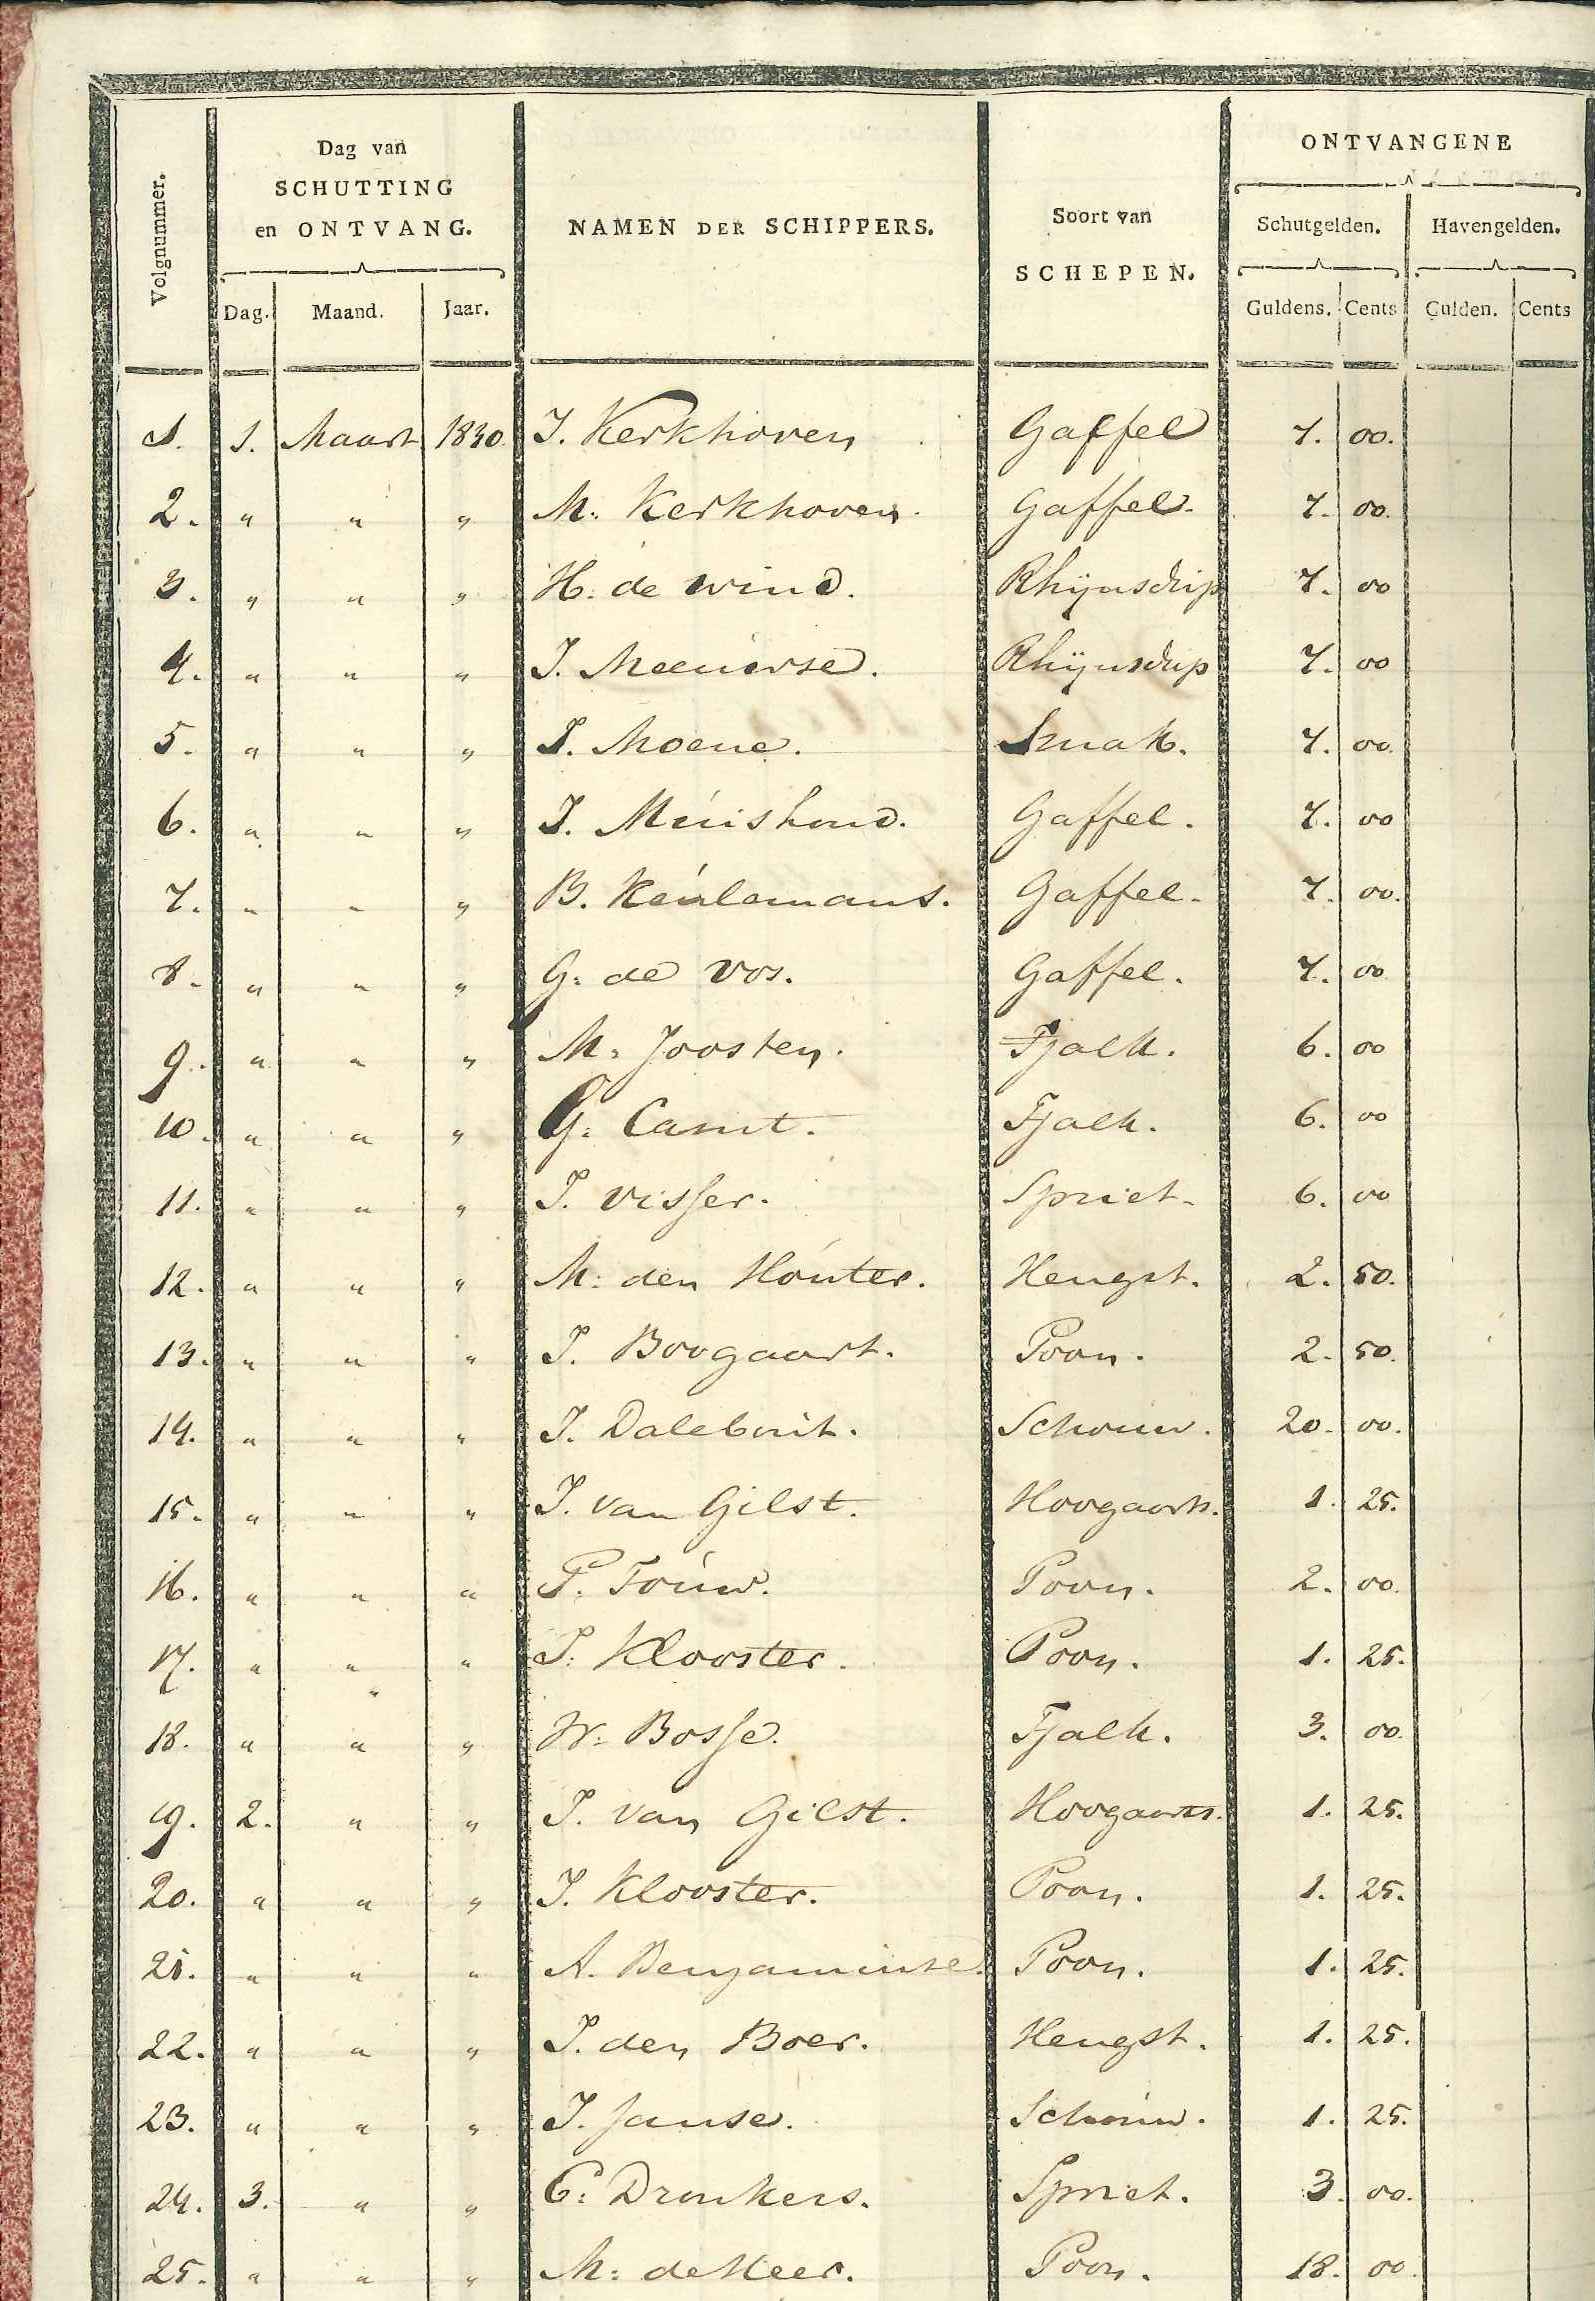 Volgnummer. Dag van SCHUTTING en ONTVANG. NAMEN DER SCHIPPERS. Soort van SCHEPEN. ONTVANGENE
Schutgelden. Havengelden.
Dag. Maand. Jaar. Guldens. Cents Gulden. Cents
1. 1. Maart 1830. J. Kerkhoven Gaffel 7. 00.
2. " " " M: Kerkhoven. Gaffel. 7. 00.
3. " " " H: de wind. Rhijnschip 7. 00
4. " " " J. Meeuwse. Rhijnschip 7. 00
5. " " " J. Moene. Smak. 7. 00.
6. " " " J. Muishond. Gaffel. 7. 00
7. " " " B. Keulemans. Gaffel. 7. 00.
8. " " " G: de Vos. Gaffel. 7. 00
9. " " " M: Joosten. Tjalk. 6. 00
10. " " " G: Tjalk. 6. 00
11. " " " J. Visser. Spriet. 6. 00
12. " " " M: den Houter. Hengst. 2. 50.
13. " " " J. Boogaart. Poon. 2. 50.
14. " " " J. Dalebout. Schouw. 20. 00.
15. " " " J. van Gilst. Hoogaarts. 1. 25.
16. " " " P. Touw. Poon. 2. 00.
17. " " " J. Klooster. Poon. 1. 25.
18. " " " W: Bosse. Tjalk. 3. 00.
19. 2. " " J. van Gilst. Hoogaarts. 1. 25.
20. " " " J. Klooster. Poon. 1. 25.
21. " " " A. Benjaminse. Poon. 1. 25.
22. " " " J. den Boer. Hengst. 1. 25.
23. " " " J. Janse. Schouw. 1. 25.
24. 3. " " C: Dronkers. Spriet. 3. 00.
25. " " " M: de Meer. Poon. 18. 00.